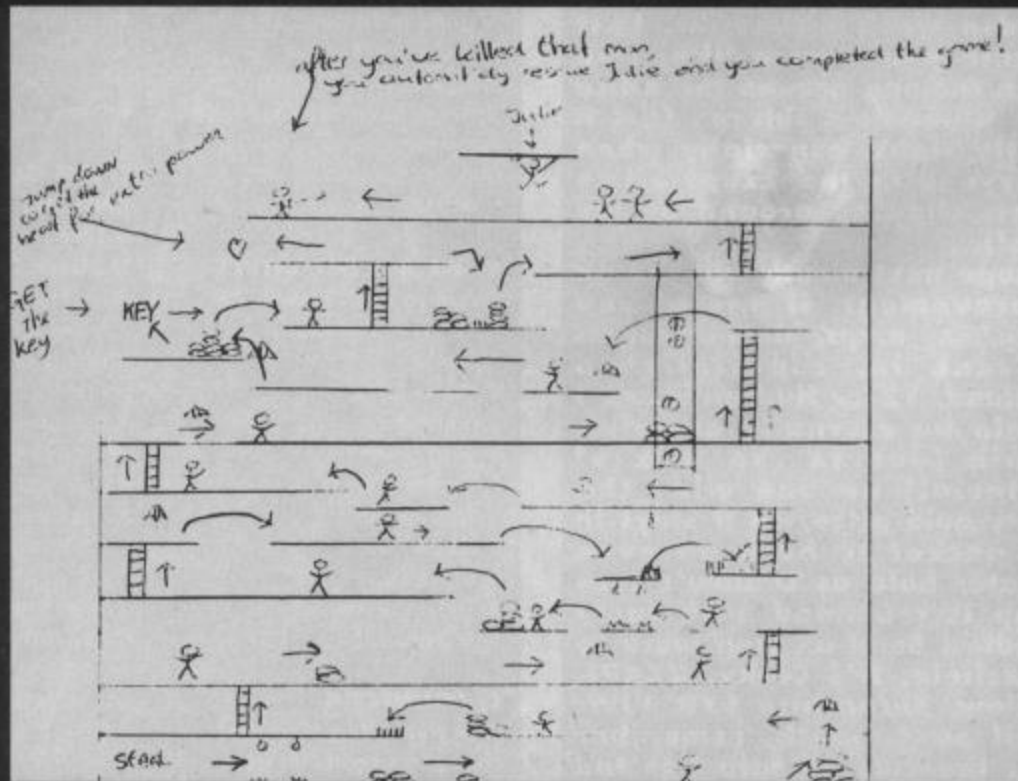 after you've killed that man,
you automitaly rescue Julie and you completed the game!
Julie
Jump down
collect the
heart for extra power
GET
the
key
KEY
START